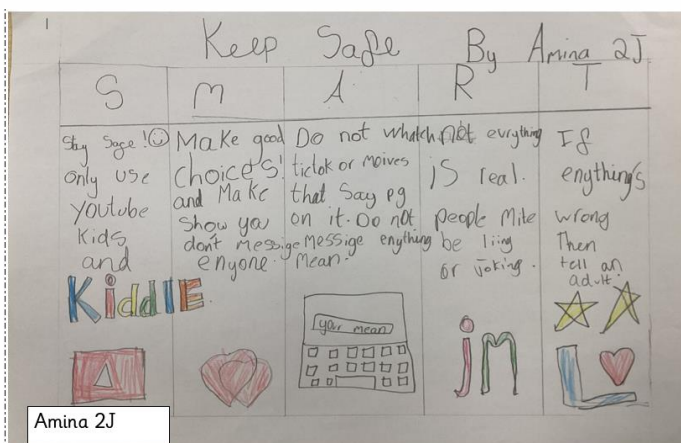 1
Keep Safe By Amina 2J
S M A R T
Stay Sage!
only use
youtube
Kids
and
KiddlE.
Make good
choices!
and Make
show you
don't messige
enyone.
Do not whatch
tictok or moives
that say pg
on it. Do not
messige enything
mean.
not evrything
is real.
people mite
be liing
or joking.
If
enything's
wrong
Then
tell an
adult.
your mean
jm
L
Amina 2J